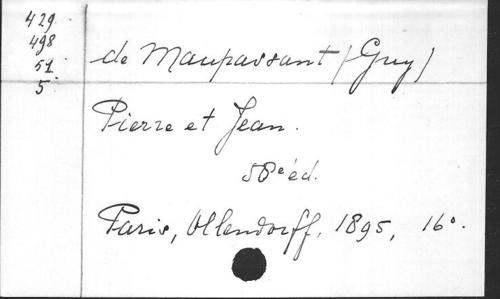 429
498
51
5
de Maupassant (Guy)
Pierre et Jean.
58e éd.
Paris, Ollendorff, 1895, 16°.